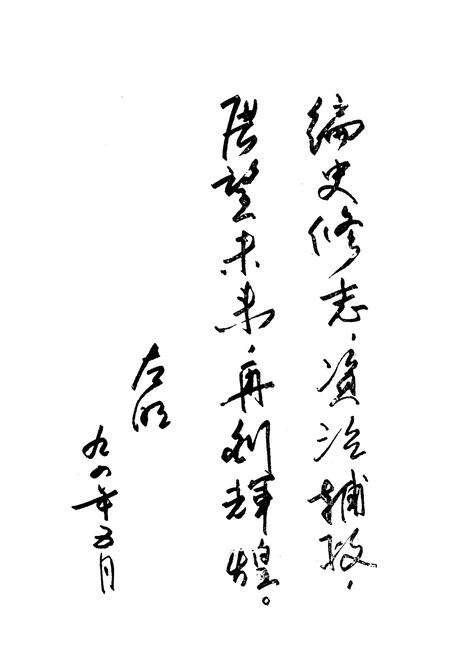 编史修志，资治辅政，
展望未来，再创辉煌。
左明
九四年五月